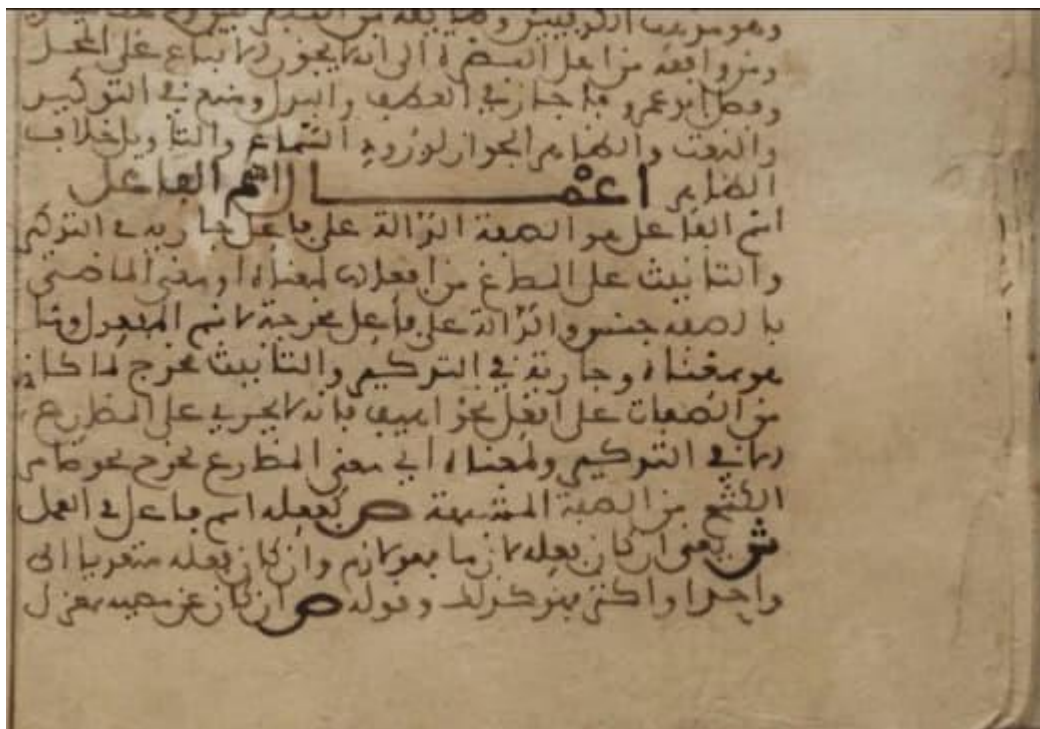 وهو مذهب الكوفيين وطائفة من
ومن وافقه من اهل البصرة الى انه لا يجوز الاتباع على المحل
وفصل ابو عمرو فاجاز في العطف والبدل ومنع في التوكيد
والنعت والظاهر الجواز لورود السماع والتاويل خلاف
الظاهر اعْمـال اسم الفاعل
اسم الفاعل هو الصفة الدالة على فاعل جارية في التذكير
والتانيث على المضارع من افعالها لمعناه او معنى الماضي
فالصفة جنس والدالة على فاعل مخرجة لاسم المفعول وما
هو بمعناه وجارية في التذكير والتانيث مخرج لما كان
من الصفات على افعل نحو اهيف فانه لا يجري على المضارع
الا في التذكير ولمعناه اي معنى المضارع مخرج نحو ضامر
الكشح من الصفة المشبهة ص كفعله اسم فاعل في العمل
ش يعني ان كان فعله لازما فهو لازم وان كان فعله متعديا الى
واحد او اكثر فهو كذلك وقوله ص ان كان عن مضيه بمعزل